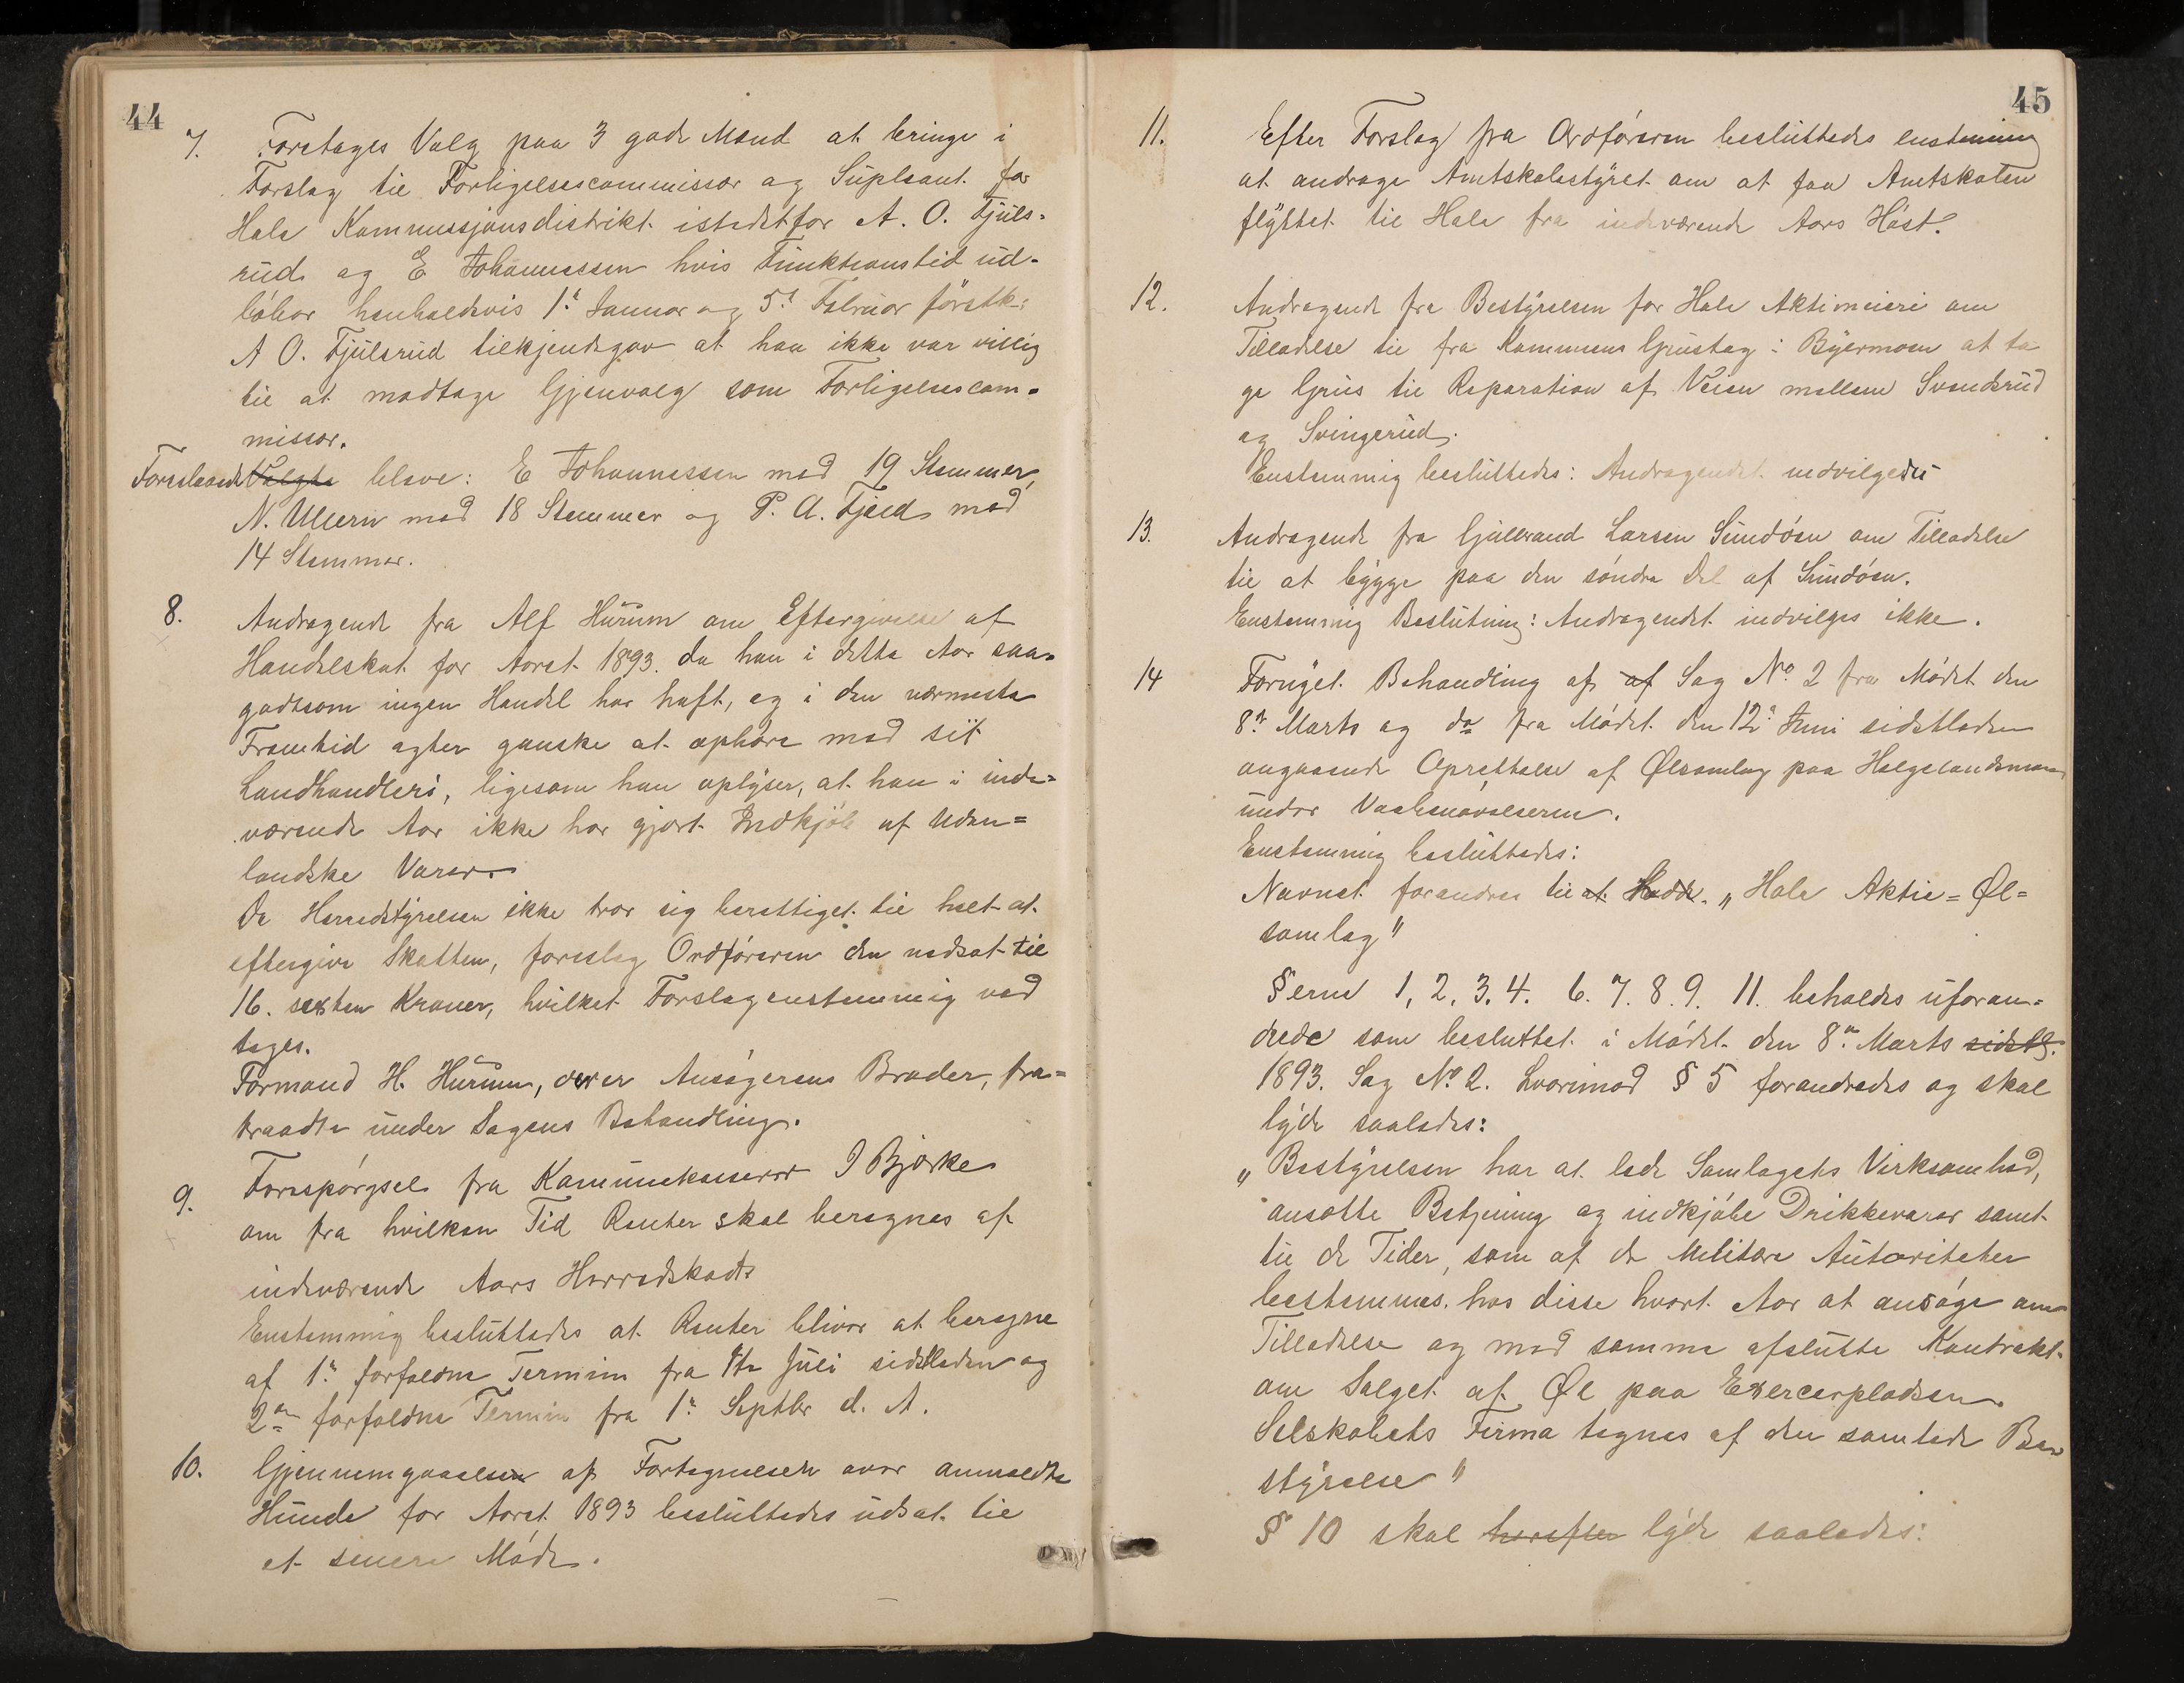 44
7. Foretages Valg paa 3 gode Mænd at bringe i
Forslag til Forligelsescommissær og Supleant for
Hole Kommissjonsdistrikt istedetfor A. O. Fjuls-
rud og E Johannessen hvis Funktionstid ud-
løber henholdsvis 1ste Januar og 5te Februar förstk:
A O. Fjulsrud tilkjendegav at han ikke var villig
til at modtage Gjenvalg som Forligelsescom-
missær.
Foreslaaede Valgte bleve: E Johannessen med 19 Stemmer,
N. Ullern med 18 Stemmer og P. A. Fjeld med
14 Stemmer.
8. Andragende fra Alf Hurum om Eftergivelse af
Handelskat for Aaret 1893. da han i dette Aar saa-
godtsom ingen Handel har haft, og i den nærmeste
Fremtid agter ganske at ophøre med sit
Landhandleri, ligesom han oplyser, at han i inde-
værende Aar ikke har gjort Indkjöb af Uden-
landske Varer.
Da Herredstyrelsen ikke tror sig berettiget til helt at
eftergive Skatten, foreslog Ordføreren den nedsat til
16. sexten Kroner, hvilket Forslag enstemmig ved
toges.
Formand H. Hurum, der er Ansøgerens Broder, fra-
traadte under Sagens Behandling.
9. Forespørgsel fra Kommunekasserer I Bjørke
om fra hvilken Tid Renter skal beregnes af
indeværende Aars Herredskat
Enstemmig besluttedes at Renter bliver at beregne
af 1ste forfaldne Termin fra 1te Juli sidstleden og
2den forfaldne Termin fra 1ste Septbr d. A.
10. Gjennemgaaelsen af Fortegnelsen over anmeldte
Hunde for Aaret 1893 besluttedes udsat til
et senere Møde.
45
11. Efter Forslag fra Ordføreren besluttedes enstemmig
at andrage Amtskolestyret om at faa Amtskolen
flyttet til Hole fra indeværende Aars Høst.
12. Andragende fra Bestyrelsen for Hole Aktiemeieri om
Tilladelse til fra Kommunens Grustag i Byermoen at ta
ge Grus til Reparation af Veien mellem Svendsrud
og Svingerud.
Enstemmig besluttedes: Andragendet indvilgedes
13. Andragende fra Gulbrand Larsen Sundøen om Tilladelse
til at bygge paa den søndre Del af Sundøen.
Enstemmig Beslutning: Andragendet indvilges ikke.
14 Fornyet Behandling af af Sag No. 2 fra Mødet den
8de Marts og do fra Mødet den 12te Juni sidstleden
angaaende Oprettelse af Ølsamlag paa Helgelandsmoen
under Vaabenøvelserne.
Enstemmig besluttedes:
Navnet forandres til at Hedde „Hole Aktie=Øl=
samlag"
§erne 1, 2, 3, 4. 6. 7. 8. 9. 11. beholdes uforan-
drede som besluttet i Mødet den 8de Marts sidstl.
1893. Sag No. 2. Hvorimod § 5 forandredes og skal
lyde saaledes:
„Bestyrelsen har at lede Samlagets Virksomhed,
ansætte Betjening og indkjøbe Drikkevarer samt
til de Tider, som af de Militære Autoriteter
bestemmes, hos disse hvert Aar at ansøge om
Tilladelse og med samme afslutte Kontrakt
om Salget af Øl paa Exercerpladsen.
Selskabets Firma tegnes af den samlede Be-
styrelse"
§ 10 skal herefter lyde saaledes: